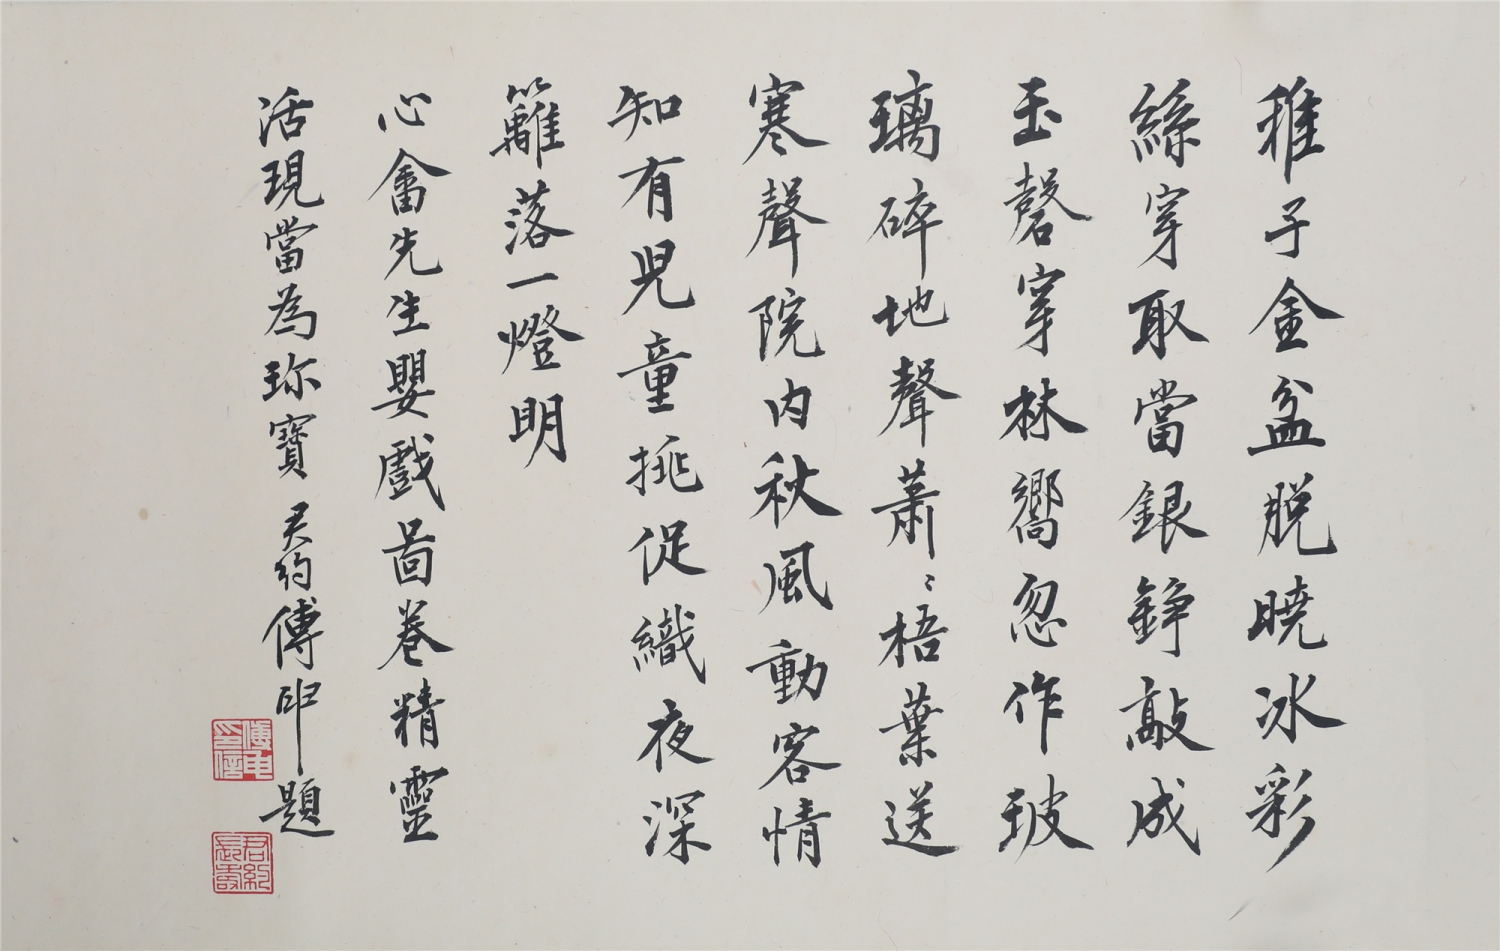 稚子金盆脫曉冰彩
絲穿取當銀錚敲成
玉磬穿林嚮忽作玻
璃碎地聲蕭〻梧葉送
寒聲院內秋風動客情
知有児童挑促織夜深
籬落一燈明
心畬先生嬰戲啚卷精靈
活現當為珎寶君約傅申題
傅申印信
君約長壽